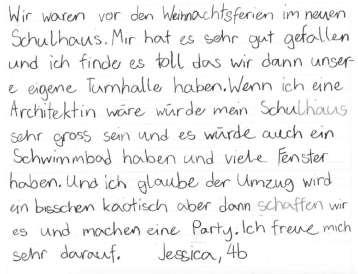 Wir waren vor den Weihnachtsferien im neuen
Schulhaus. Mir hat es sehr gut gefallen
und ich finde es toll das wir dann unser-
e eigene Turnhalle haben. Wenn ich eine
Architektin wäre würde mein Schulhaus
sehr gross sein und es würde auch ein
Schwimmbad haben und viele Fenster
haben. Und ich glaube der Umzug wird
ein bisschen kaotisch aber dann schaffen wir
es und machen eine Party. Ich freue mich
sehr darauf. Jessica, 4b